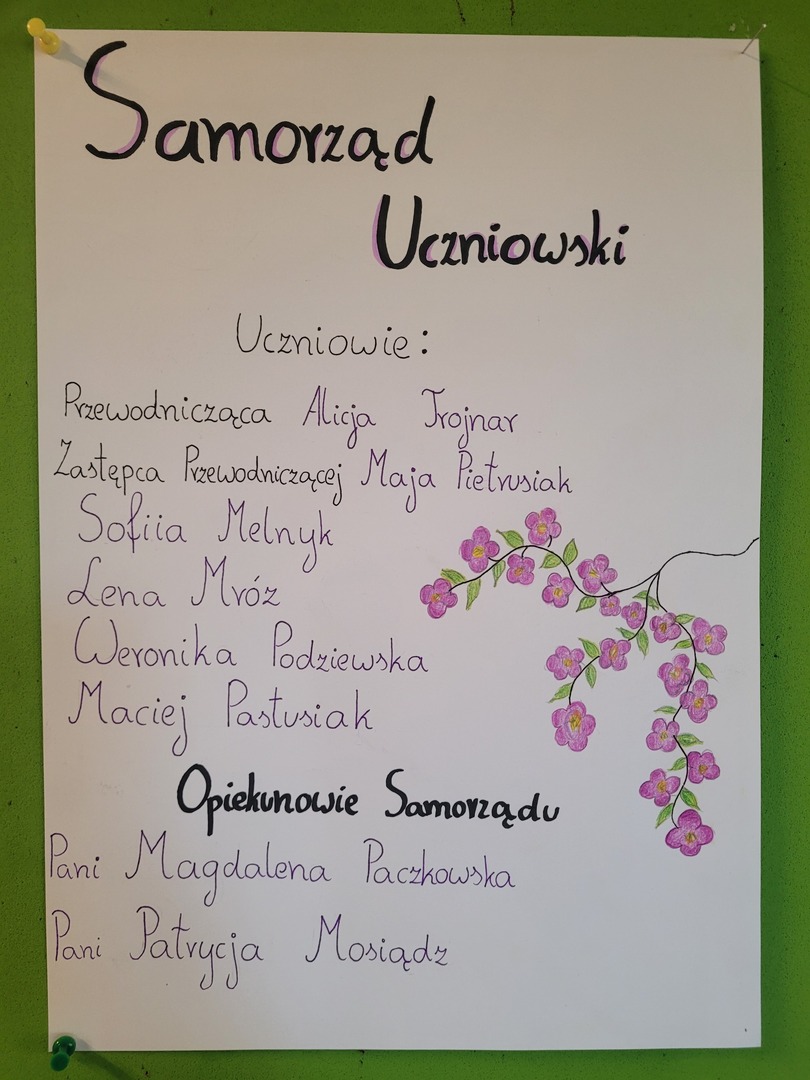 Samorząd
Uczniowski
Uczniowie:
Przewodnicząca Alicja Trojnar
Zastępca Przewodniczącej Maja Pietrusiak
Sofiia Melnyk
Lena Mróz
Weronika Podziewska
Maciej Pastusiak
Opiekunowie Samorządu
Pani Magdalena Paczkowska
Pani Patrycja Mosiądz